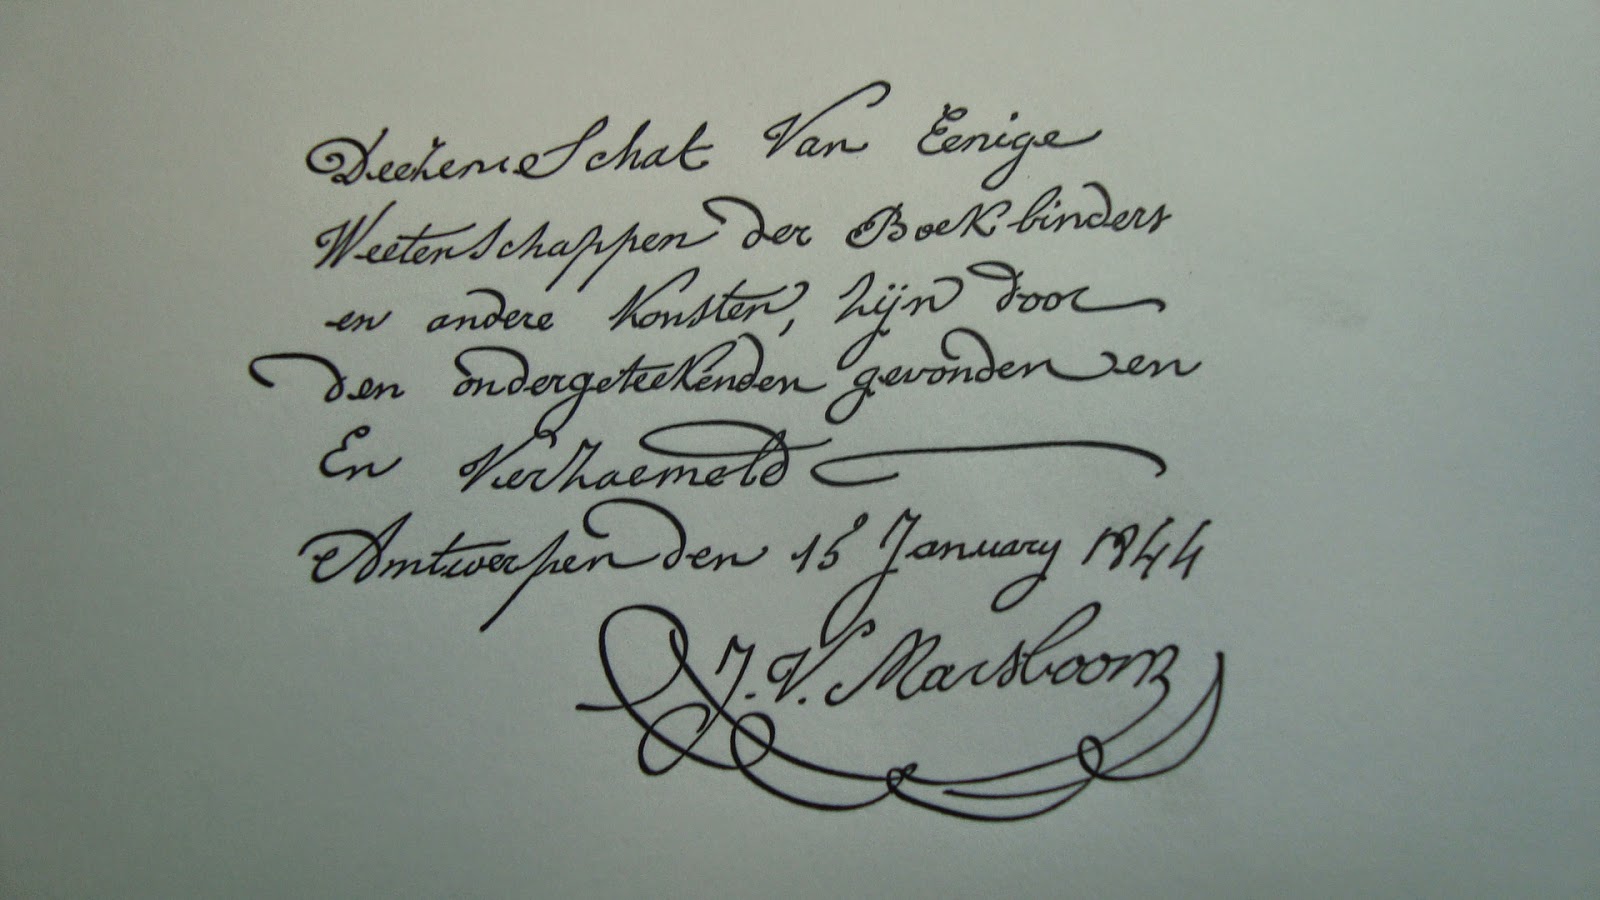 Deezen Schat Van Eenige
Weetenschappen der Boekbinders
en andere Konsten, zijn door
den ondergeteekenden gevonden en
En Verzaemeld
Antwerpen den 15 January 1844
J. V. Marsboom